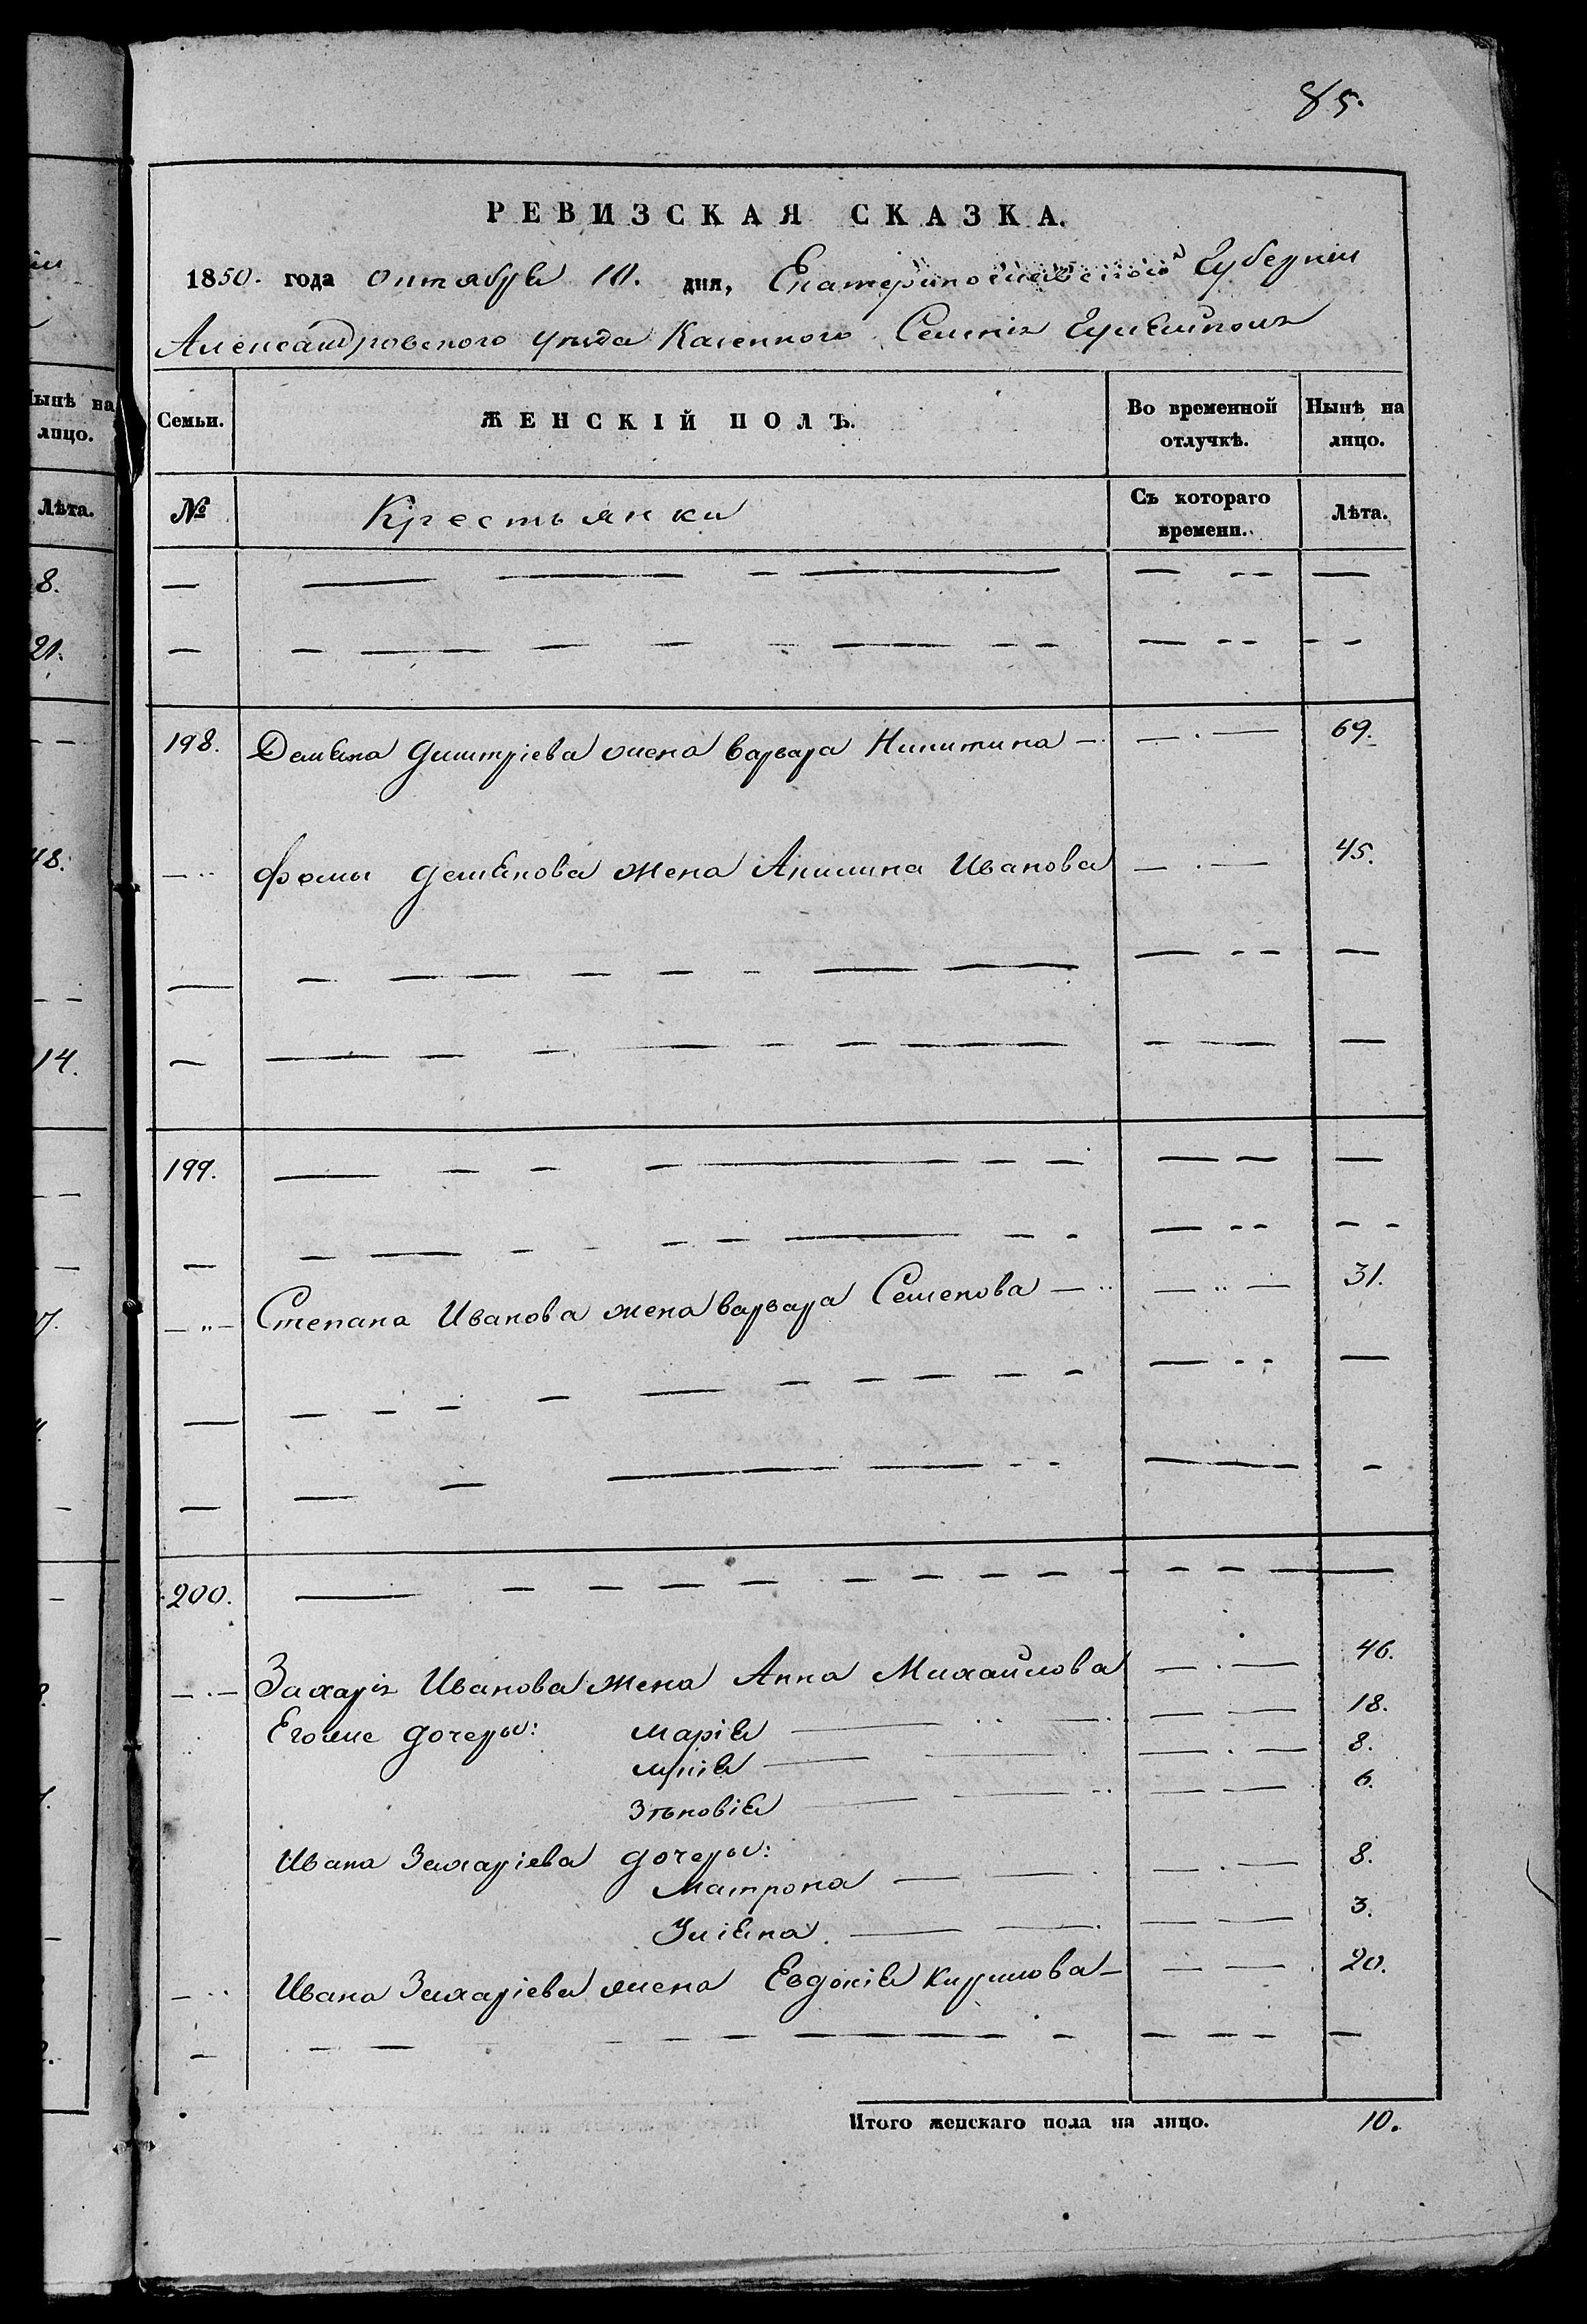 85.
РЕВИЗСКАЯ СКАЗКА.
1850. года октября 10. дня, Екатеринославской Губернии
Александровского уезда Казенного Селенія Гуляйполя
Семьи.
ЖЕНСКІЙ ПОЛЪ.
Во временной отлучкѣ.
Нынѣ на лицо.
№
Крестьянки
Съ котораго времени.
Лѣта.
198. Демьяна Дмитріева жена Варвара Никитина 69.
Фомы Демьянова жена Акилина Иванова 45.
199.
Степана Иванова жена Варвара Семенова 31.
200.
Захарія Иванова жена Анна Михайлова 46.
Его же дочеры: Марія 18.
8.
Зѣновія 6.
Ивана Захаріева дочеры:
Матрона 8.
Уліяна. 3.
Ивана Захаріева жена Евдокія Кирилова 20.
Итого женскаго пола на лицо. 10.
Нынѣ на
лицо.
Лѣта.
8.
21.
48.
14.